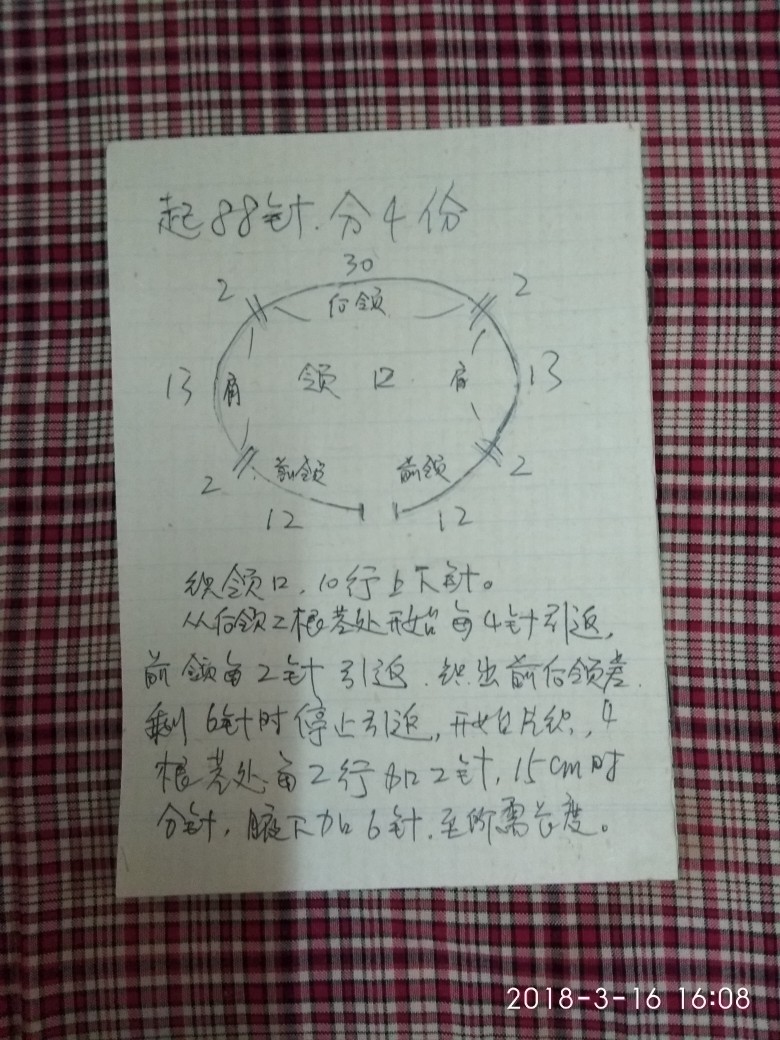 起88针.分4份
30
2
2
后领
13
肩
领口
肩
13
2
前领
前领
2
12
12
织领口,10行上下针。
从后领2根茎处开始每4针引返,
前领每2针引返.织出前后领差.
剩6针时停止引返,开始片织,4
根茎处每2行加2针,15cm时
分针,腋下加6针.至所需长度。
2018-3-16 16:08